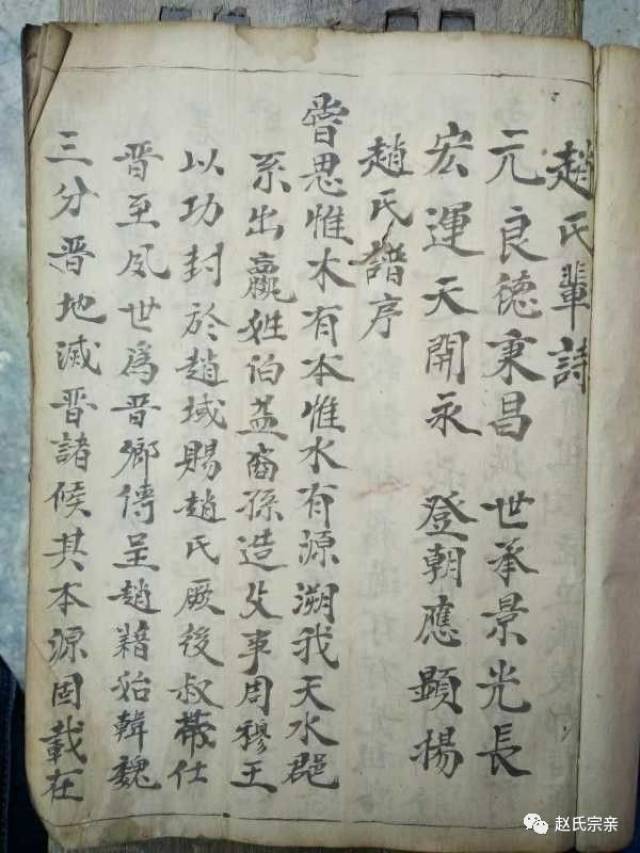 趙氏輩詩
元良德秉昌 世承景光長
宏運天開永 登朝應顯揚
趙氏譜序
嘗思惟木有本惟水有源溯我天水郡
系出嬴姓伯益裔孫造父事周穆王
以功封於趙域賜趙氏厥後叔帶仕
晋至夙世為晋卿傳呈趙籍始韓魏
三分晋地滅晋諸候其本源固載在
赵氏宗亲